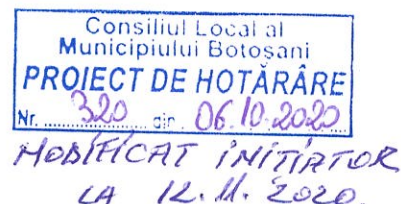 Consiliul Local al
Municipiului Botoşani
PROIECT DE HOTĂRÂRE
Nr. 320 din 06.10.2020
MODIFICAT INIŢIATOR
LA 12.11.2020.